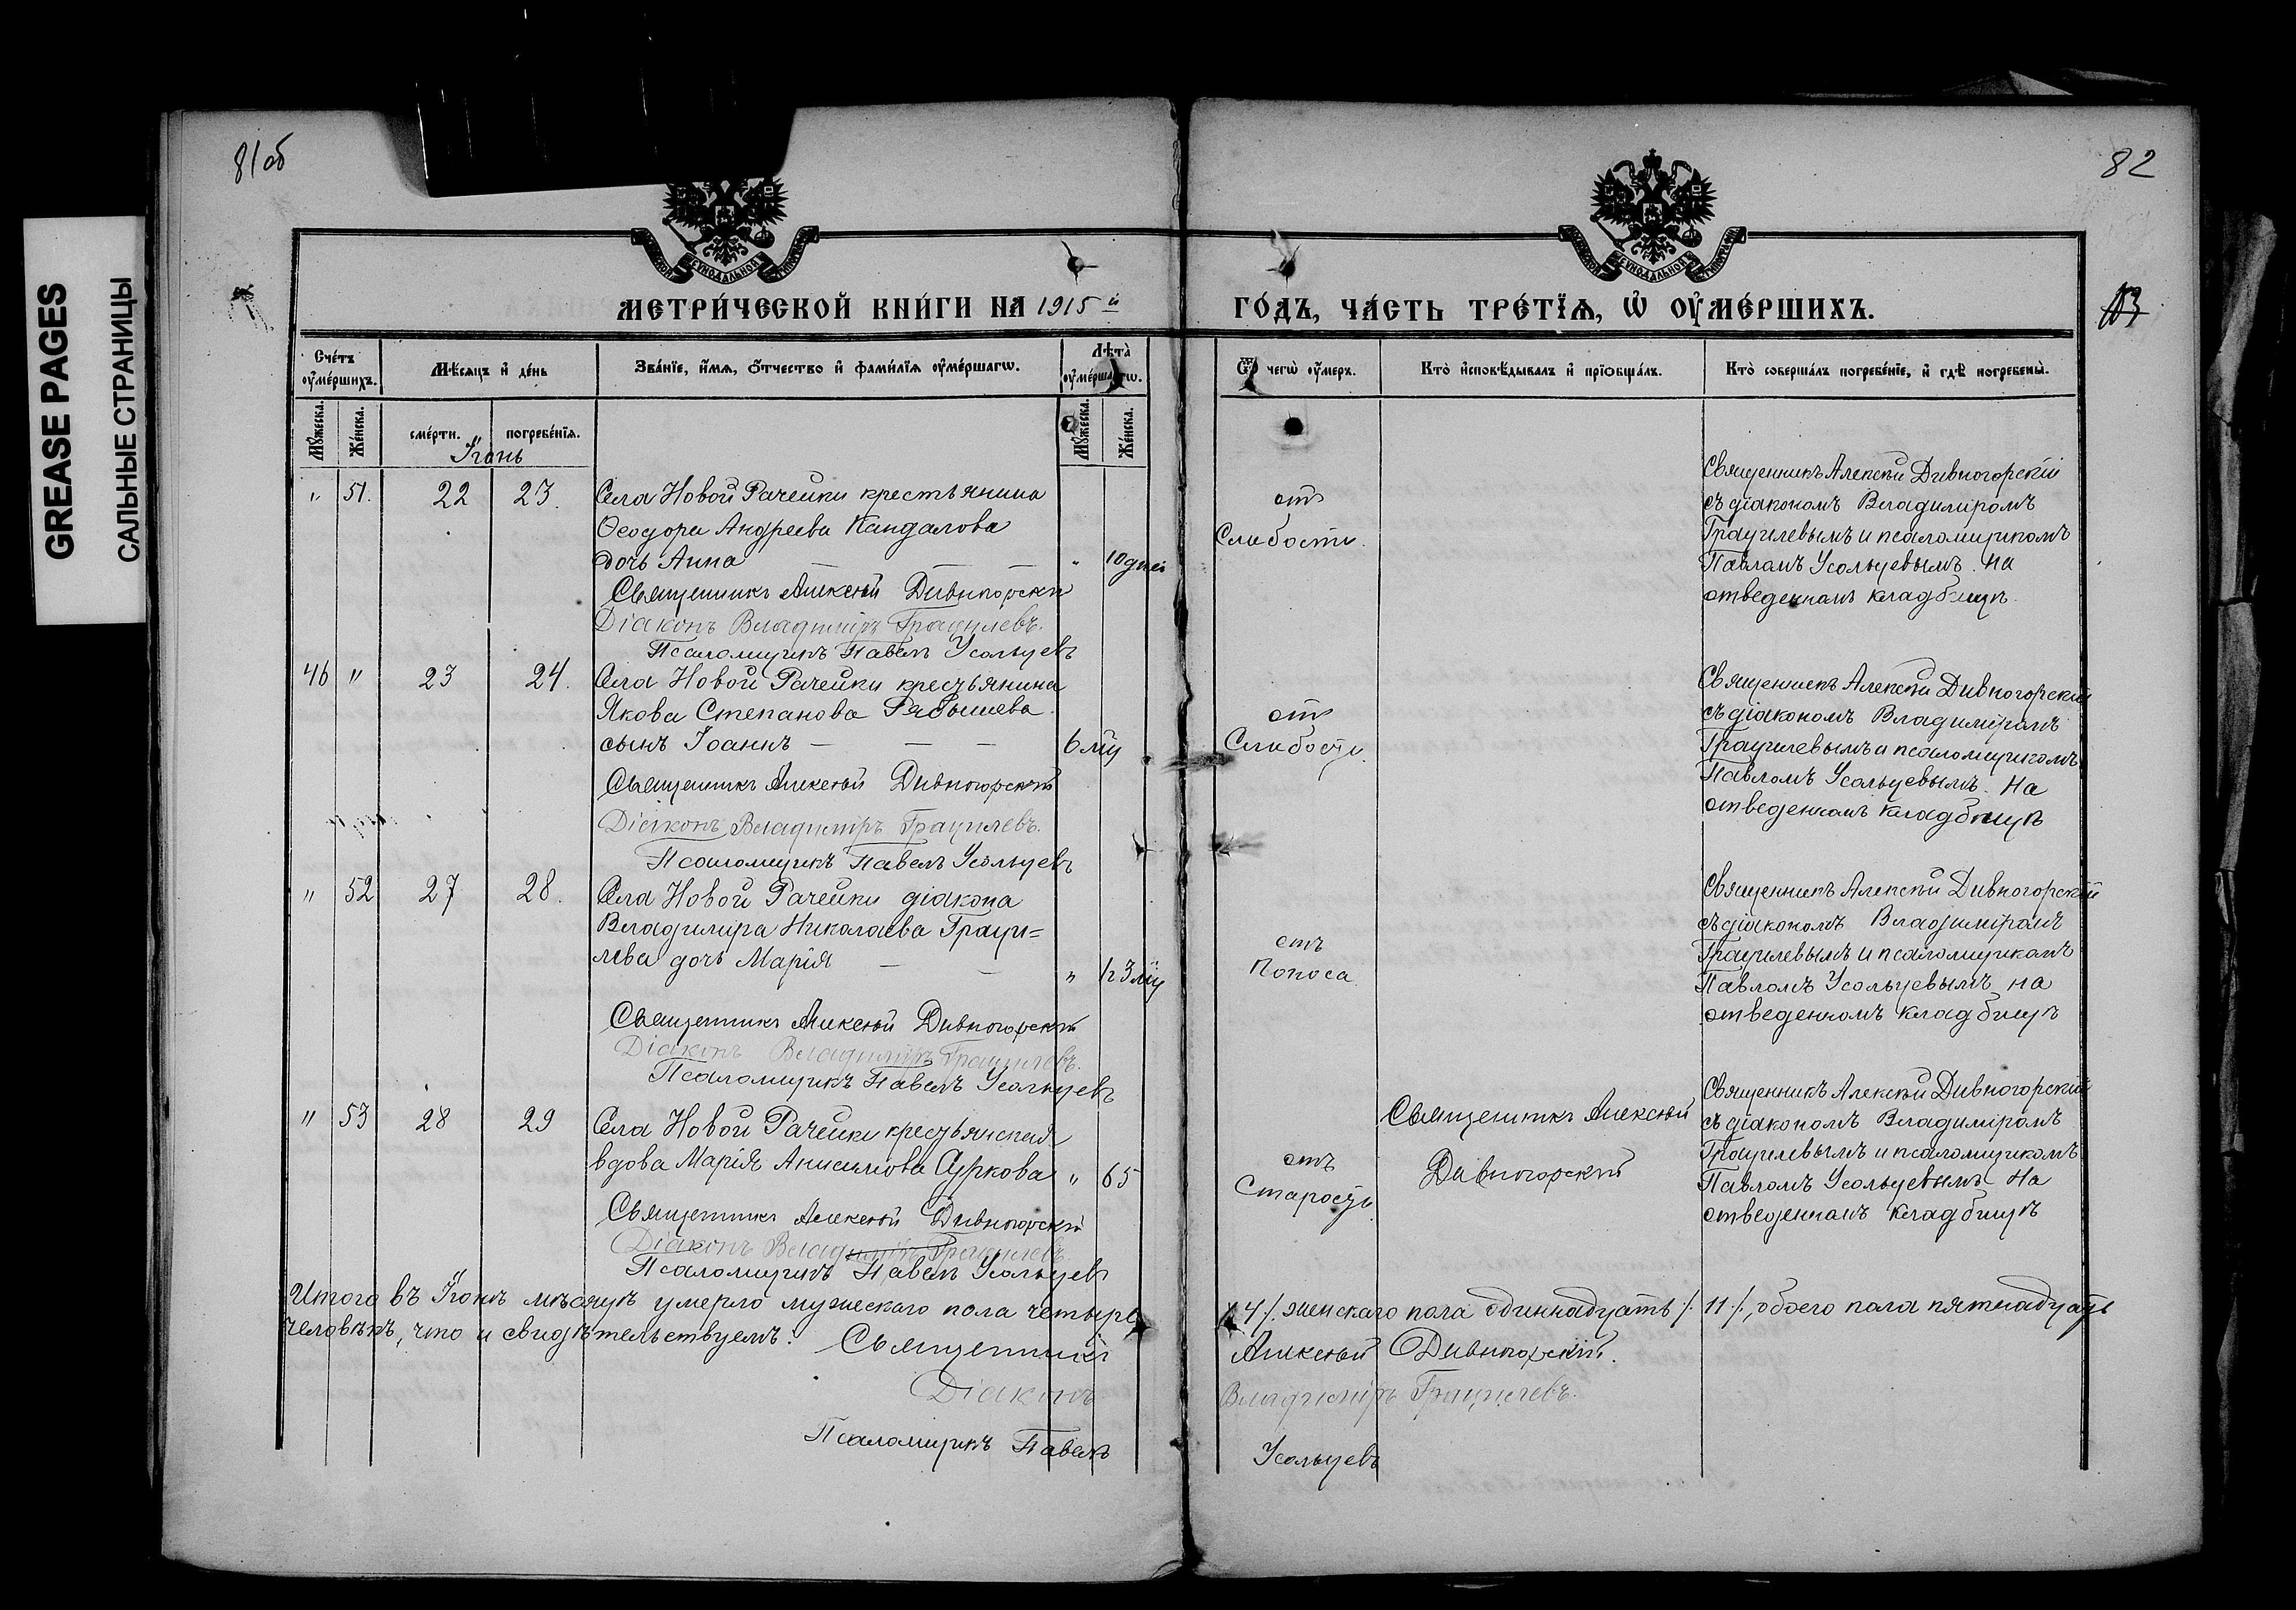 81об
82
GREASE PAGES
САЛЬНЫЕ СТРАНИЦЫ
МЕТРИ́ЧЕСКОЙ КНИ́ГИ НА 1915 й
ГО́ДЪ, ЧА́СТЬ ТРЕ́ТЇѦ, Ѡ҆ ОУ҆МЕ́РШИХЪ.
Сче́тъ оу҆ме́ршихъ.
Мѣ́сяцъ и҆ де́нь
Зва́нїе, и҆́мѧ, о҆́тчество и҆ фами́лїѧ оу҆ме́ршагѡ.
Лѣ́та оу҆ме́ршагѡ.
Ѿ чегѡ̀ оу҆́меръ.
Кто̀ и҆сповѣ́дывалъ и҆ прїѡбща́лъ.
Кто̀ соверша́лъ погребе́нїе, и҆ гдѣ̀ погребены̀.
Мꙋ́жеска.
Же́нска.
сме́рти.
погребе́нїѧ.
Мꙋ́жеска.
Же́нска.
Іюнь
" 51. 22 23. Села Новой Рачейки крестьянина
Ѳеодора Андреева Кандалова
дочь Анна — — — " 10 дней
Священникъ Алексѣй Дивногорскій
Діаконъ Владиміръ Грацилевъ.
Псаломщикъ Павелъ Усольцевъ
отъ
Слабости.
Священникъ Алексѣй Дивногорскій
съ діакономъ Владиміромъ
Грацилевымъ и псаломщикомъ
Павломъ Усольцевымъ. На
отведенномъ кладбищѣ.
46 " 23 24. Села Новой Рачейки крестьянина
Якова Степанова Рябышева
сынъ Іоаннъ — — — 6 мц
Священникъ Алексѣй Дивногорскій
Діаконъ Владиміръ Грацилевъ.
Псаломщикъ Павелъ Усольцевъ
отъ
Слабости.
Священникъ Алексѣй Дивногорскій
съ діакономъ Владиміромъ
Грацилевымъ и псаломщикомъ
Павломъ Усольцевымъ. На
отведенномъ кладбищѣ
" 52 27 28. Села Новой Рачейки діакона
Владиміра Николаева Граци=
лева дочь Марія — — " 3 мц
Священникъ Алексѣй Дивногорскій
Діаконъ Владиміръ Грацилевъ.
Псаломщикъ Павелъ Усольцевъ
отъ
Поноса
Священникъ Алексѣй Дивногорскій
съ діакономъ Владиміромъ
Грацилевымъ и псаломщикомъ
Павломъ Усольцевымъ на
отведенномъ кладбищѣ
" 53 28 29 Села Новой Рачейки крестьянская
вдова Марія Анисимова Суркова " 65
Священникъ Алексѣй Дивногорскій
Діаконъ Владиміръ Грацилевъ
Псаломщикъ Павелъ Усольцевъ
отъ
Старости.
Священникъ Алексѣй
Дивногорскій
Священникъ Алексѣй Дивногорскій
съ діакономъ Владиміромъ
Грацилевымъ и псаломщикомъ
Павломъ Усольцевымъ На
отведенномъ кладбищѣ
Итого въ Іюнѣ мѣсяцѣ умерло мужескаго пола четыре /4/. женскаго пола одиннадцать /. 11 /., обоего пола пятнадцать
человѣкъ, что и свидѣтельствуемъ: Священникъ Алексѣй Дивногорскій.
Діаконъ Владиміръ Грацилевъ.
Псаломщикъ Павелъ Усольцевъ